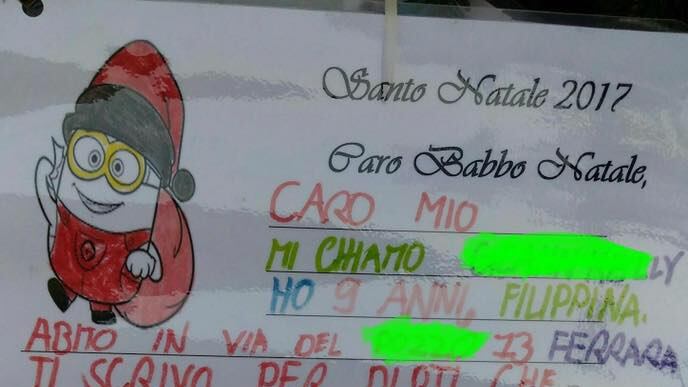 Santo Natale 2017
Caro Babbo Natale,
CARO MIO
MI CHIAMO
HO 9 ANNI, FILIPPINA.
ABITO IN VIA DEL 13 FERRARA
TI SCRIVO PER DIRTI CHE